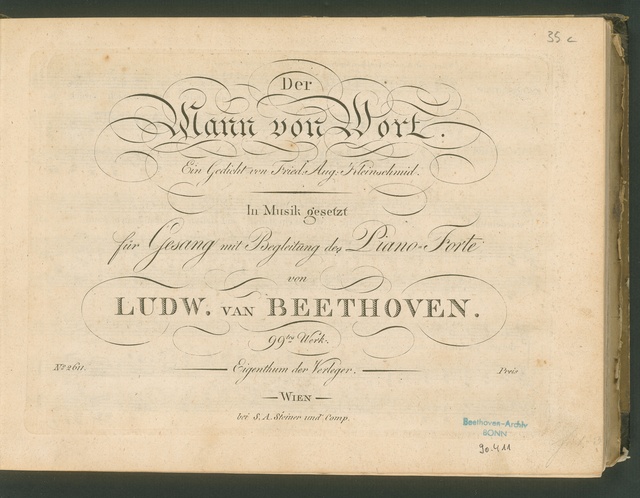 35 c
Der
Mann von Wort.
Ein Gedicht von Fried: Aug: Kleinschmid.
In Musik gesetzt
für Gesang mit Begleitung des Piano-Forte
von
LUDW. VAN BEETHOVEN.
99tes Werk.
No 2611. Eigenthum der Verleger. Preis
WIEN
bei S. A. Steiner und Comp.
Beethoven-Archiv
BONN